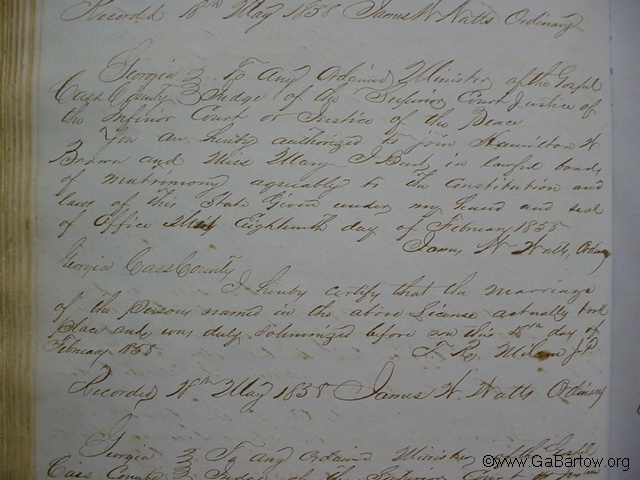 Recorded 18th May 1858 James W Watts Ordinary
Georgia } To any Ordained Minister of the Gospel
Cass County } Judge of the Superior Court Justice of
the Inferior Court or Justice of the Peace
You are hereby authorized to join Hamilton W
Brown and Miss Mary J in lawful bonds
of matrimony agreeably to the Constitution and
laws of this State Given under my hand and seal
of Office this Eighteenth day of February 1858
James W Watts, Ordinary
Georgia Cass County
I hereby certify that the marriage
of the persons named in the above License actually took
place and was duly Solemnized before me this 18th day of
February 1858 Milam J.P.
Recorded 18th May 1858 James W. Watts Ordinary
Georgia } To any Ordained Minister of the Gospel
Cass County } Judge of the Superior Court
©www.GaBartow.org